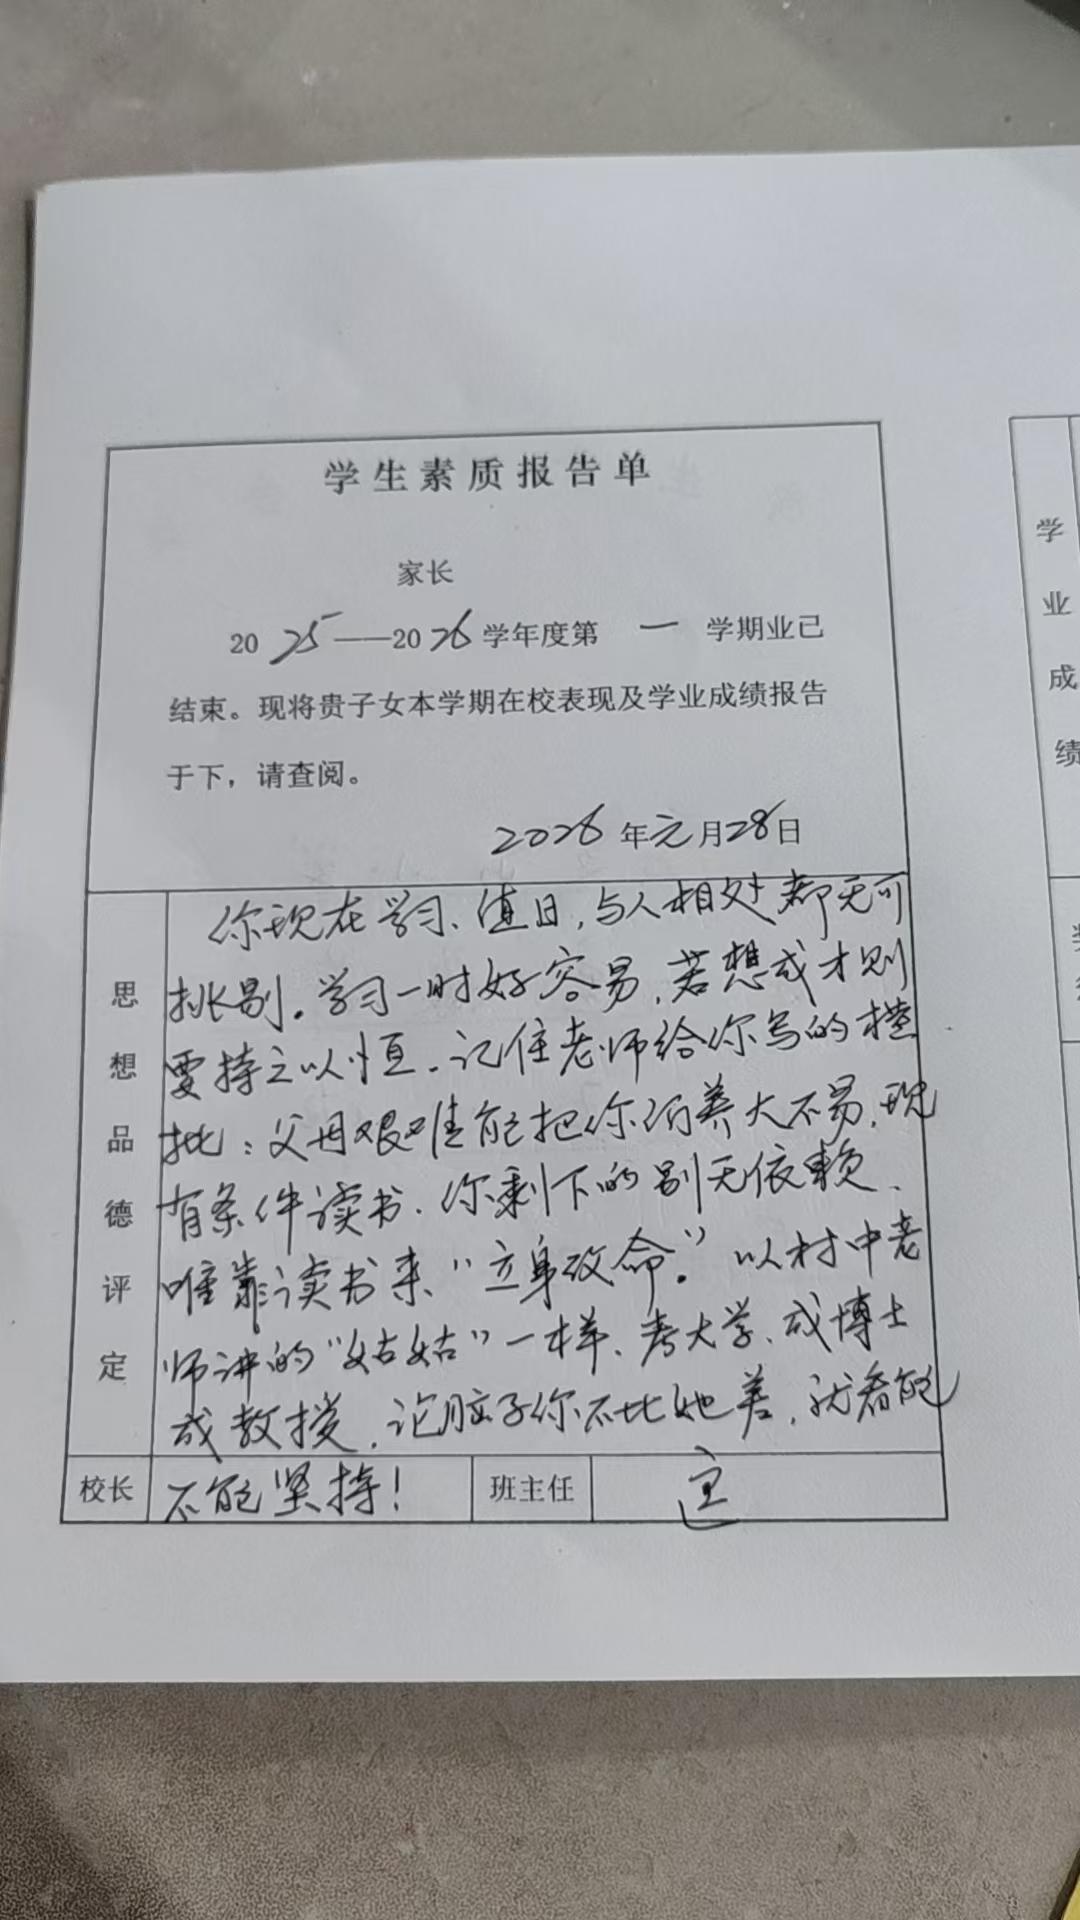 学生素质报告单
家长
2025——2026学年度第 一 学期业已
结束。现将贵子女本学期在校表现及学业成绩报告
于下，请查阅。
2026年元月28日
思想品德评定
你现在学习、值日，与人相处都无可
挑剔。学习一时好容易，若想成才则
要持之以恒。记住老师给你写的
批：父母艰难能把你们养大不易，现
有条件读书，你剩下的别无依赖、
唯靠读书来“立身改命。”以村中老
师讲的“姑姑”一样、考大学、成博士
成教授，论脑子你不比她差，就看能
校长 不能坚持！ 班主任
学业成绩